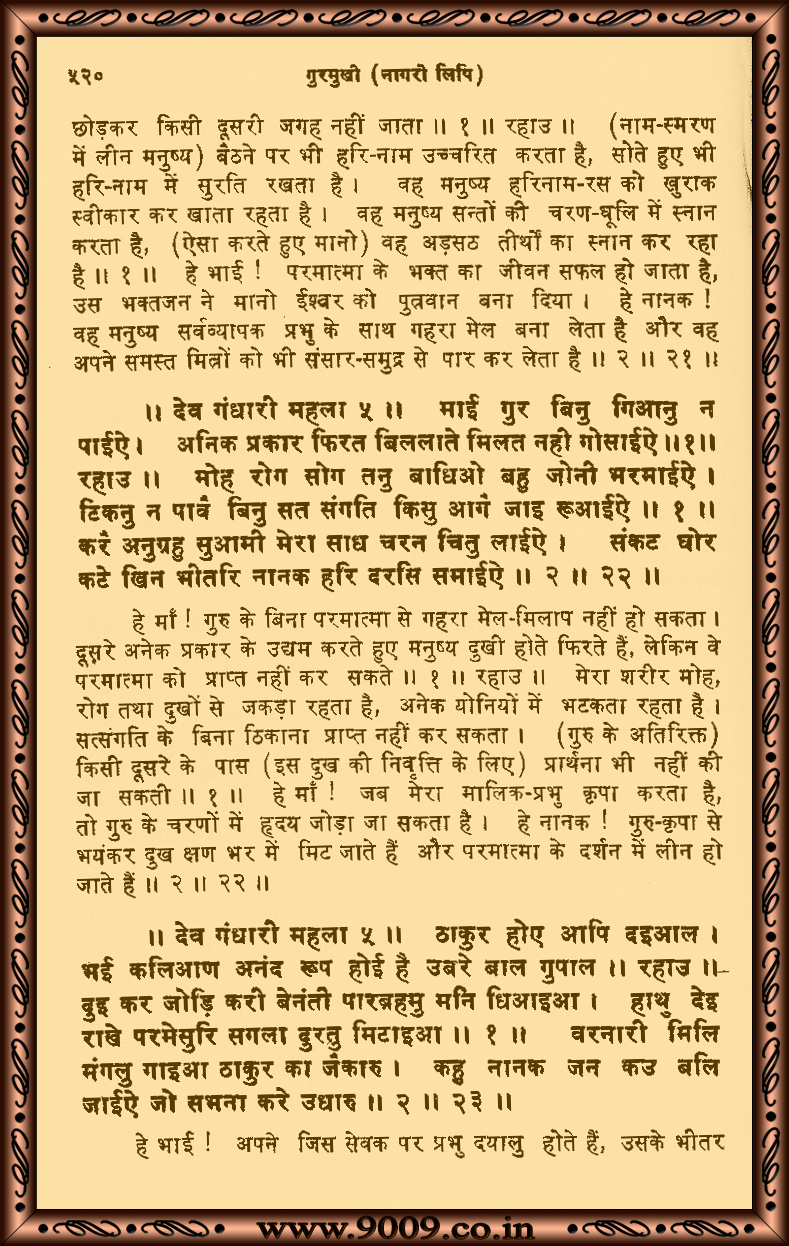 ५२०
गुरमुखी (नागरी लिपि)
छोड़कर किसी दूसरी जगह नहीं जाता ॥ १ ॥ रहाउ ॥ (नाम-स्मरण
में लीन मनुष्य) बैठने पर भी हरि-नाम उच्चरित करता है, सोते हुए भी
हरि-नाम में सुरति रखता है। वह मनुष्य हरिनाम-रस को खुराक
स्वीकार कर खाता रहता है। वह मनुष्य सन्तों की चरण-धूलि में स्नान
करता है, (ऐसा करते हुए मानो) वह अड़सठ तीर्थों का स्नान कर रहा
है ॥ १ ॥ हे भाई ! परमात्मा के भक्त का जीवन सफल हो जाता है,
उस भक्तजन ने मानो ईश्वर को पुत्रवान बना दिया। हे नानक !
वह मनुष्य सर्वव्यापक प्रभु के साथ गहरा मेल बना लेता है और वह
अपने समस्त मित्रों को भी संसार-समुद्र से पार कर लेता है ॥ २ ॥ २१ ॥
॥ देव गंधारी महला ५ ॥ माई गुर बिनु गिआनु न
पाईऐ। अनिक प्रकार फिरत बिललाते मिलत नही गोसाईऐ ॥१॥
रहाउ ॥ मोह रोग सोग तनु बाधिओ बहु जोनी भरमाईऐ ।
टिकनु न पावै बिनु सत संगति किसु आगै जाइ रूआईऐ ॥ १ ॥
करै अनुग्रहु सुआमी मेरा साध चरन चितु लाईऐ । संकट घोर
कटे खिन भीतरि नानक हरि दरसि समाईऐ ॥ २ ॥ २२ ॥
हे माँ ! गुरु के बिना परमात्मा से गहरा मेल-मिलाप नहीं हो सकता।
दूसरे अनेक प्रकार के उद्यम करते हुए मनुष्य दुखी होते फिरते हैं, लेकिन वे
परमात्मा को प्राप्त नहीं कर सकते ॥ १ ॥ रहाउ ॥ मेरा शरीर मोह,
रोग तथा दुखों से जकड़ा रहता है, अनेक योनियों में भटकता रहता है।
सत्संगति के बिना ठिकाना प्राप्त नहीं कर सकता। (गुरु के अतिरिक्त)
किसी दूसरे के पास (इस दुख की निवृत्ति के लिए) प्रार्थना भी नहीं की
जा सकती ॥ १ ॥ हे माँ ! जब मेरा मालिक-प्रभु कृपा करता है,
तो गुरु के चरणों में हृदय जोड़ा जा सकता है। हे नानक ! गुरु-कृपा से
भयंकर दुख क्षण भर में मिट जाते हैं और परमात्मा के दर्शन में लीन हो
जाते हैं ॥ २ ॥ २२ ॥
॥ देव गंधारी महला ५ ॥ ठाकुर होए आपि दइआल ।
भई कलिआण अनंद रूप होई है उबरे बाल गुपाल ॥ रहाउ ॥
दुइ कर जोड़ि करी बेनंती पारब्रहमु मनि धिआइआ । हाथु देइ
राखे परमेसुरि सगला दुरतु मिटाइआ ॥ १ ॥ वरनारी मिलि
मंगलु गाइआ ठाकुर का जैकारु । कहु नानक जन कउ बलि
जाईऐ जो सभना करे उधारु ॥ २ ॥ २३ ॥
हे भाई ! अपने जिस सेवक पर प्रभु दयालु होते हैं, उसके भीतर
www.9009.co.in